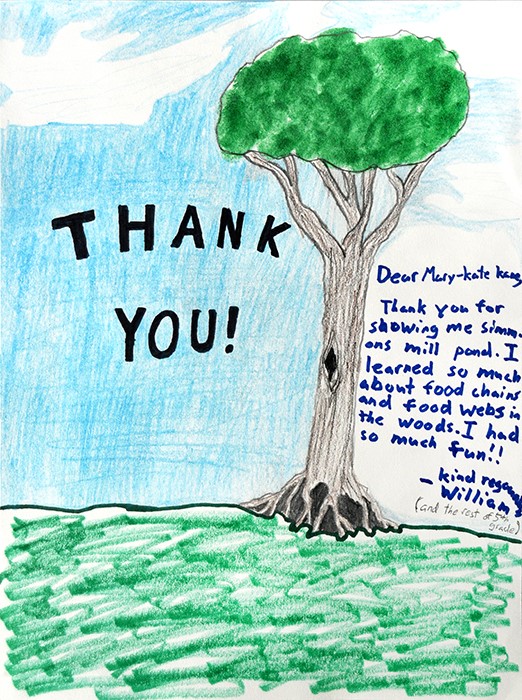 THANK
YOU!
Dear Mary-kate Kang
Thank you for
showing me simm-
ons mill pond. I
learned so much
about food chains
and food webs in
the woods. I had
so much fun!!
- kind regards
William
(and the rest of 5th
grade)